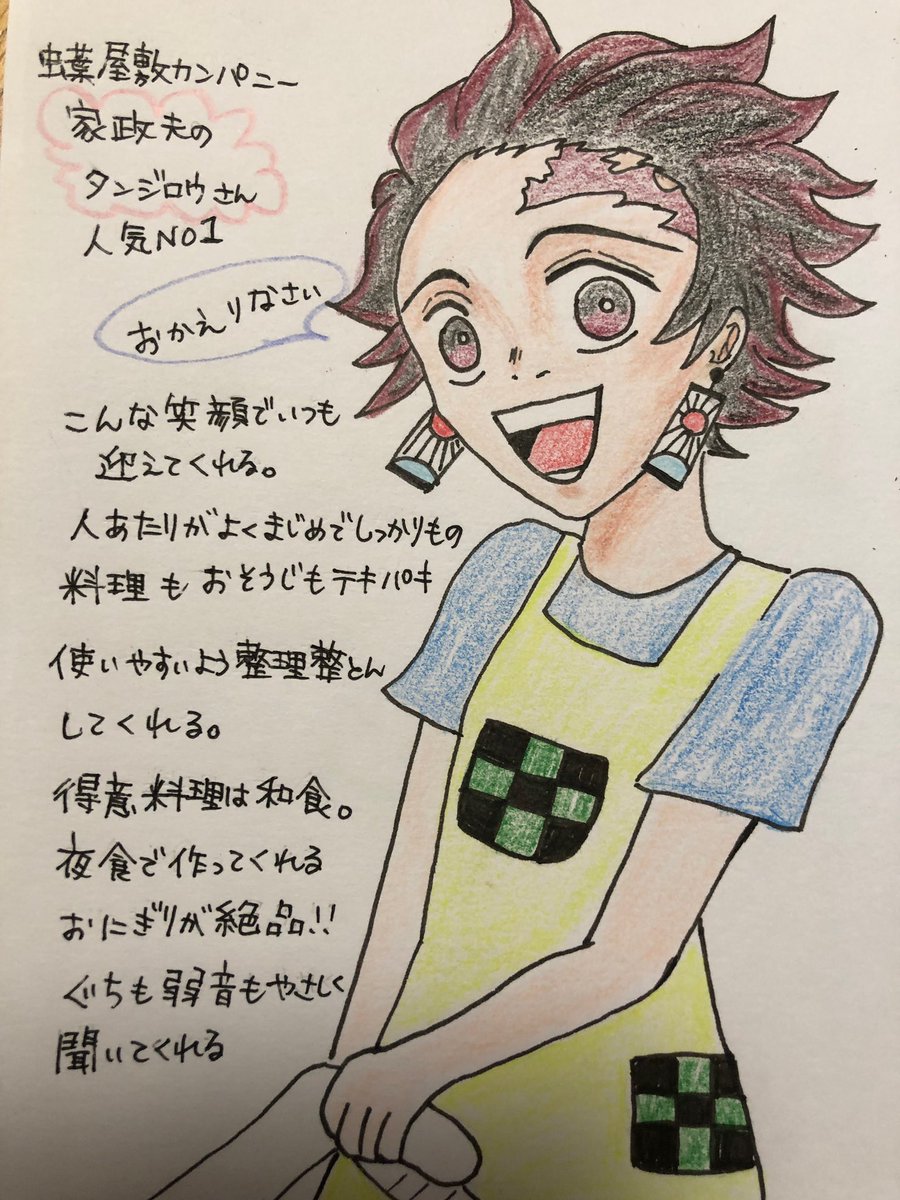 蝶屋敷カンパニー
家政夫の
タンジロウさん
人気NO1
おかえりなさい
こんな笑顔でいつも
迎えてくれる。
人あたりがよくまじめでしっかりもの
料理もおそうじもテキパキ
使いやすいよう整理整とん
してくれる。
得意料理は和食。
夜食で作ってくれる
おにぎりが絶品!!
ぐちも弱音もやさしく
聞いてくれる